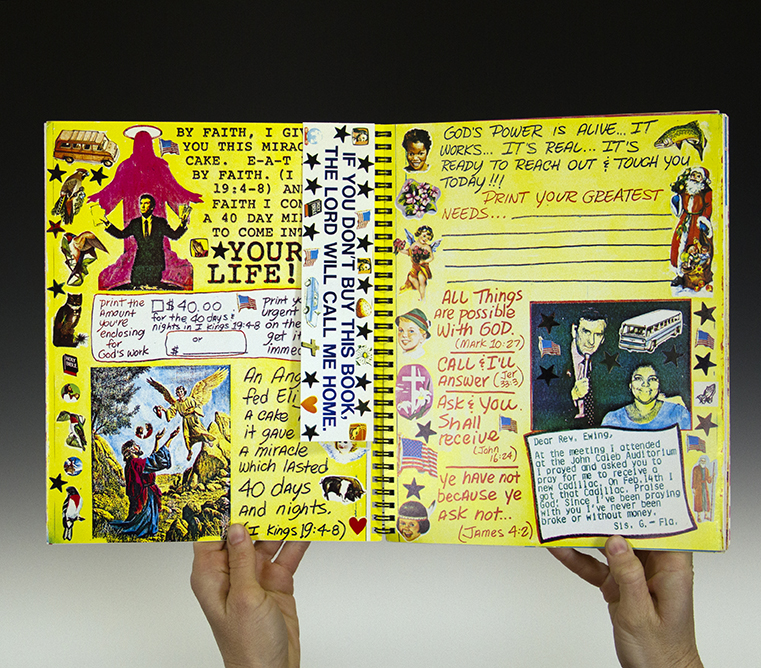 BY FAITH, I GIV
YOU THIS MIRAC
CAKE. E-A-T
BY FAITH. (I
19:4-8) AN
FAITH I CO
A 40 DAY MI
TO COME IN
★YOUR
LIFE!
print the
Amount
you're
enclosing
for
God's work
$40.00
for the 40 days &
nights in I kings 19:4-8
or
$
print y
urgent
on the
get i
immed
An Ang
fed Eli
A CAKE
it gave
A miracle
which lasted
40 days
And nights.
(I Kings 19:4-8)
HOLY
BIBLE
IF YOU DON'T BUY THIS BOOK,
THE LORD WILL CALL ME HOME.
GOD'S POWER IS ALIVE... IT
WORKS... IT'S REAL... IT'S
READY TO REACH OUT & TOUCH YOU
TODAY!!!
PRINT YOUR GREATEST
NEEDS...
All Things
are possible
With GOD.
(Mark 10:27)
CALL & I'll
Answer (Jer
33:3)
Ask & You
Shall
receive
(John
16:24)
ye have not
because ye
ask not...
(James 4:2)
Dear Rev. Ewing,
At the meeting I attended
at the John Caleb Auditorium
I prayed and asked you to
pray for me to receive a
new Cadillac. On Feb.14th I
got that Cadillac. Praise
God! Since I've been praying
with you I've never been
broke or without money.
Sis. G.- Fla.